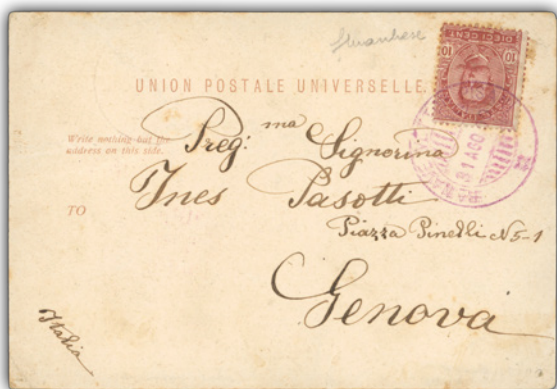 UNION POSTALE UNIVERSELLE.
DIECI CENT
10 10
Write nothing but the
address on this side.
Preg: ma Signorina
TO
Ines Pasotti
Piazza Pinelli N 5-1
Genova
Italia